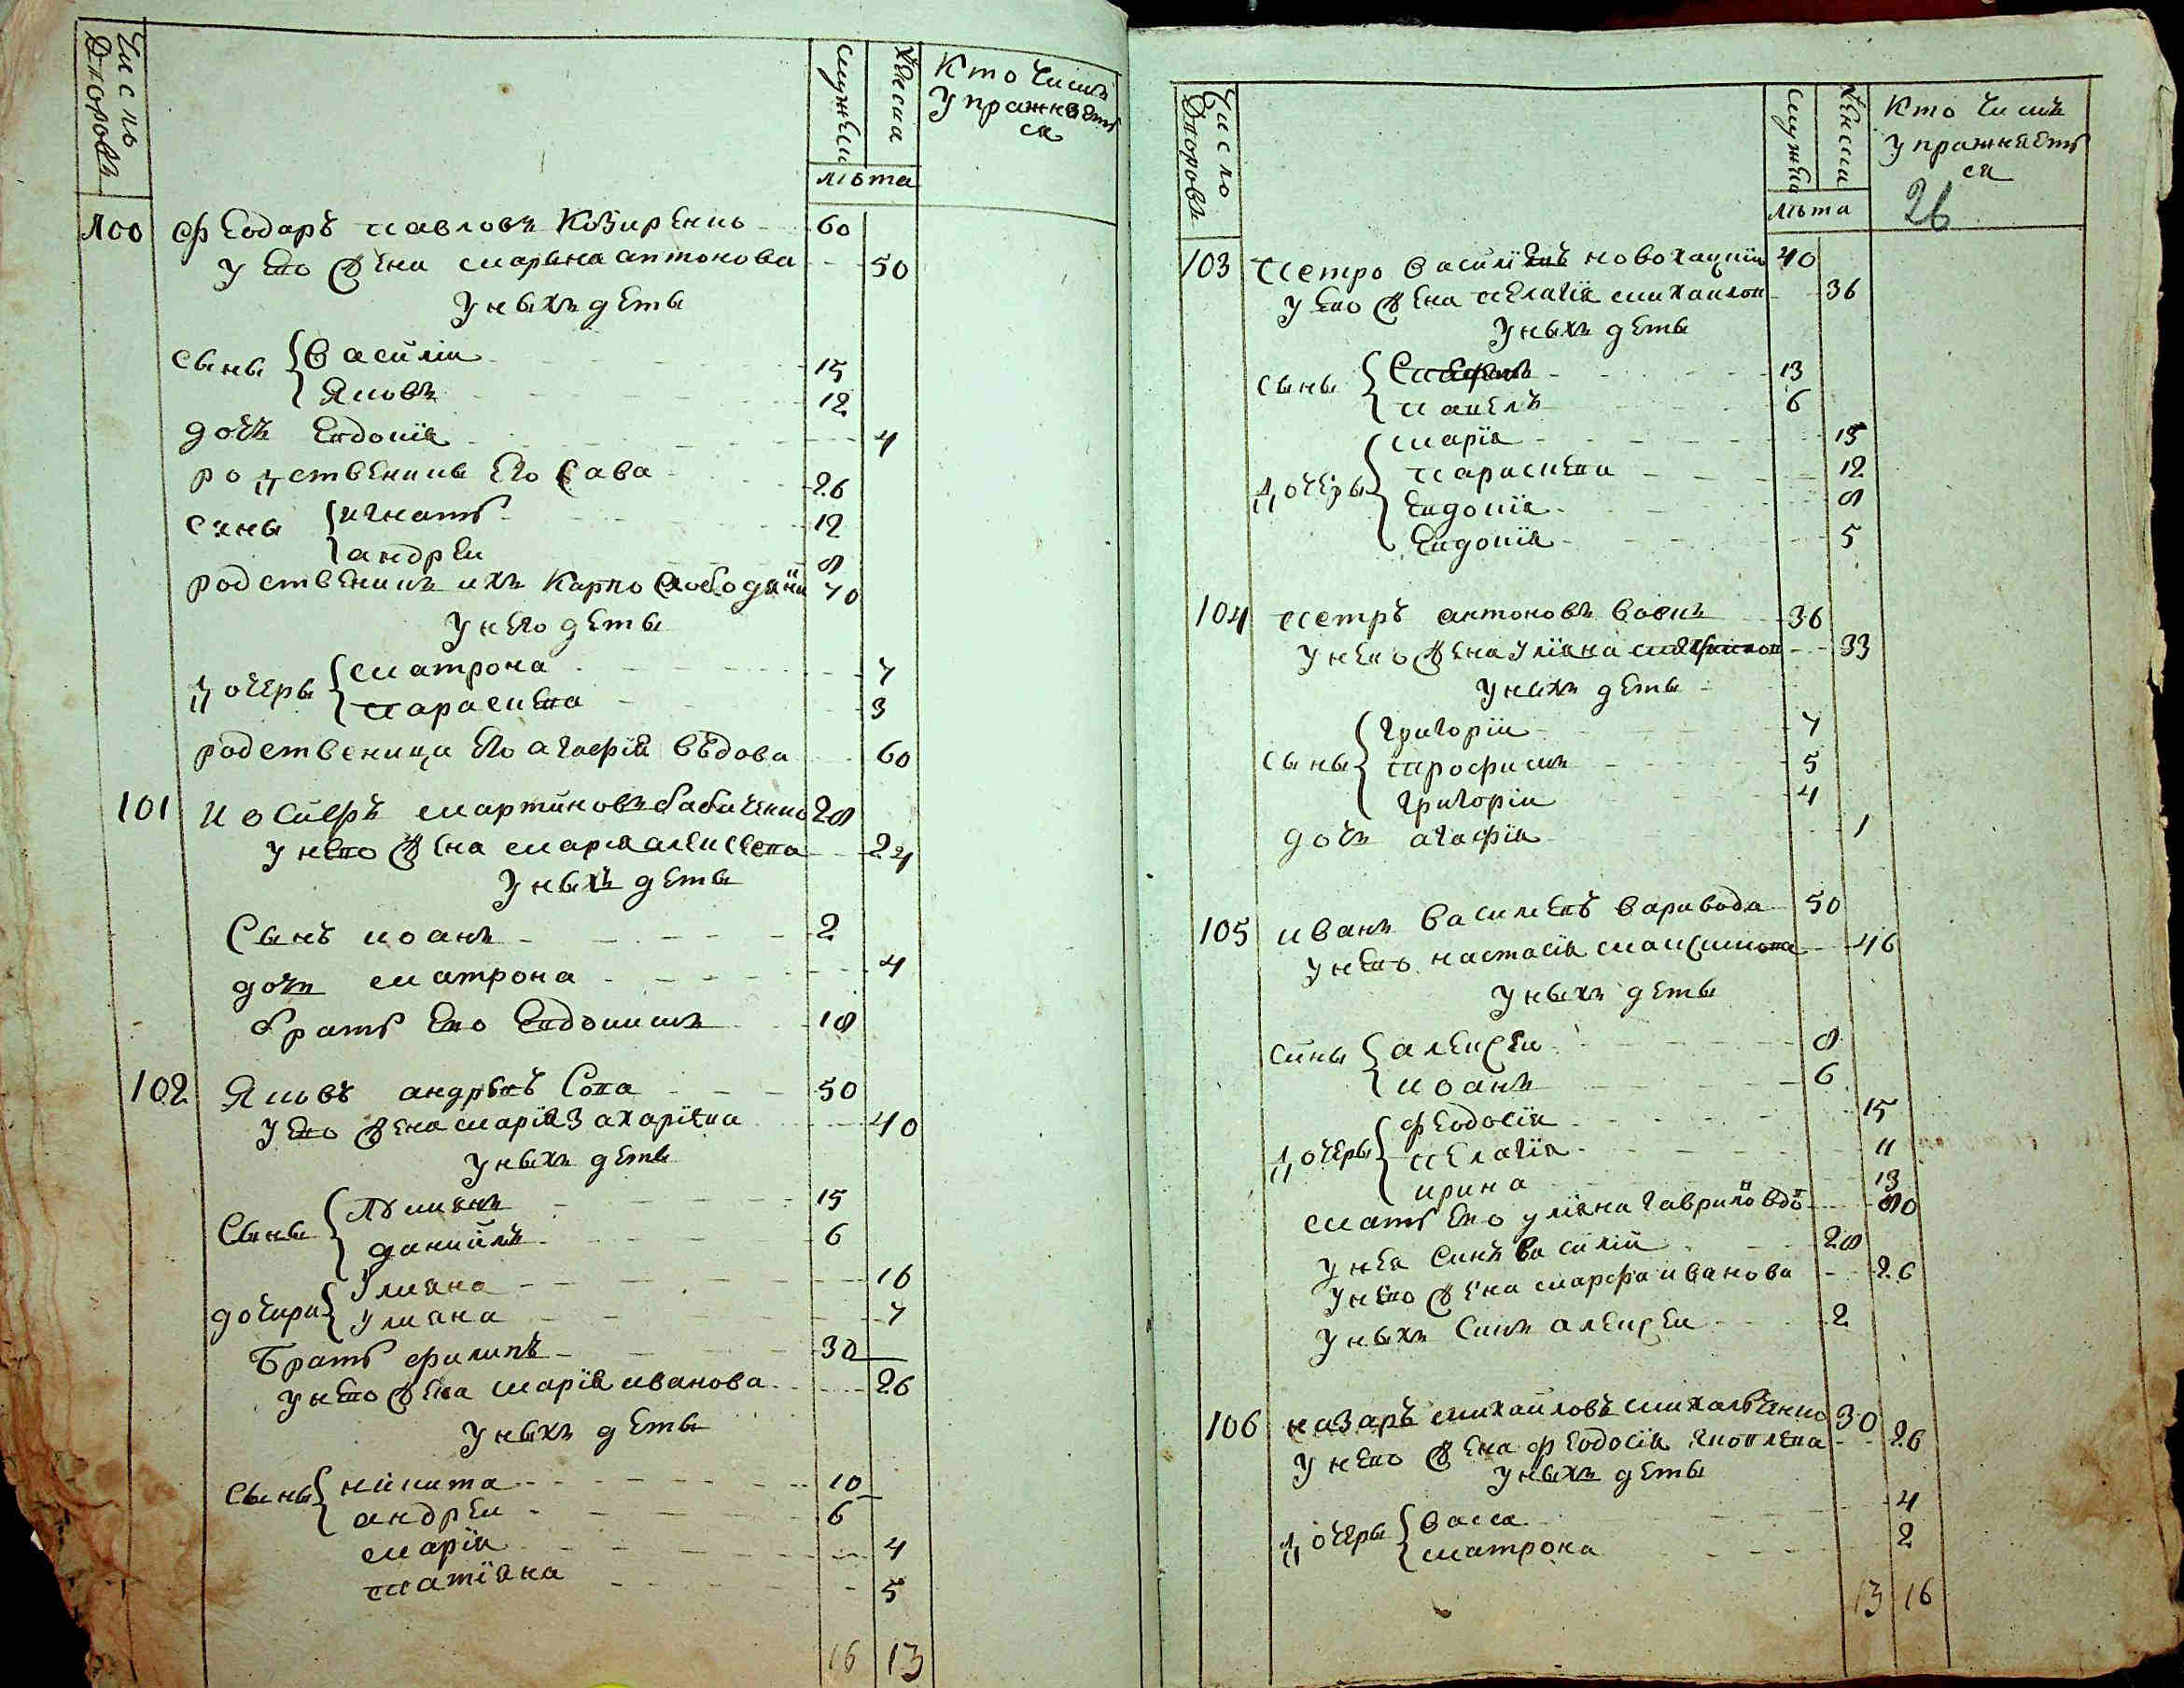 Число Дворовъ
мужеска
женска
лѣта
Кто чимъ
упражняетъ
ся
100 Феодаръ павловъ Козиренко 60
у его жена марина антонова 50
у ныхъ деты
сыны Васи́лiи 15
Яковъ 12
дочъ Евдокiя 4
родственикъ его Сава 26
сины игнатъ 12
андреи 8
родственикъ ихъ Карпо Слободяни 70
у него деты
дочеры матрона 7
параскева 3
родственица его агафiя въдова 60
101 Иосифъ мартиновъ бабиченко 28
у него жена мария алексеева 24
у ныхъ деты
Сынъ иоанъ 2
дочъ матрона 4
братъ его Евдокимъ 18
102 Яковъ андреевъ Сова 50
у его жена марiя Захарiева 40
у ныхъ деты
Сыны лукиянъ 15
даниилъ 6
дочири Улияна 16
Улияна 7
Братъ филипъ 30
у него жена марiя иванова 26
у ныхъ деты
Сыны никита 10
андреи 6
марiя 4
татiяна 5
16 13
Число Дворовъ
мужеска
женска
лѣта
Кто чимъ
упражняетъ
ся
26
103 Петро василiевъ новохацкiи 40
у его жена пелагiя михаилов 36
у ныхъ деты
сыны 13
павелъ 6
дочеры марiя 15
параскева 12
Евдокiя 8
Евдокiя 5
104 петръ антоновъ вовкъ 36
у него жена улiяна 33
у ныхъ деты
сыны григорiи 7
трофимъ 5
григорiи 4
дочъ агафiя 1
105 иванъ василевъ варивода 50
у него настасiя максимова 46
у ныхъ деты
сины алексеи 8
иоанъ 6
дочеры феодосiя 15
пелагiя 11
ирина 13
матъ его улiяна гаврилов вдо 80
у нея синъ василiи 28
у него жена марфа иванова 26
у ныхъ синъ алексеи 2
106 назаръ михаиловъ михалченко 30
у него жена феодосiя яковлева 26
у ныхъ деты
дочеры васса 4
матрона 2
13 16